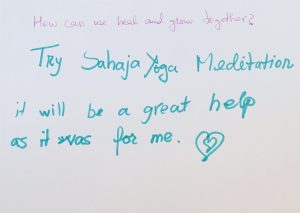 How can we heal and grow together?
Try Sahaja Yoga Meditation
it will be a great help
as it was for me.